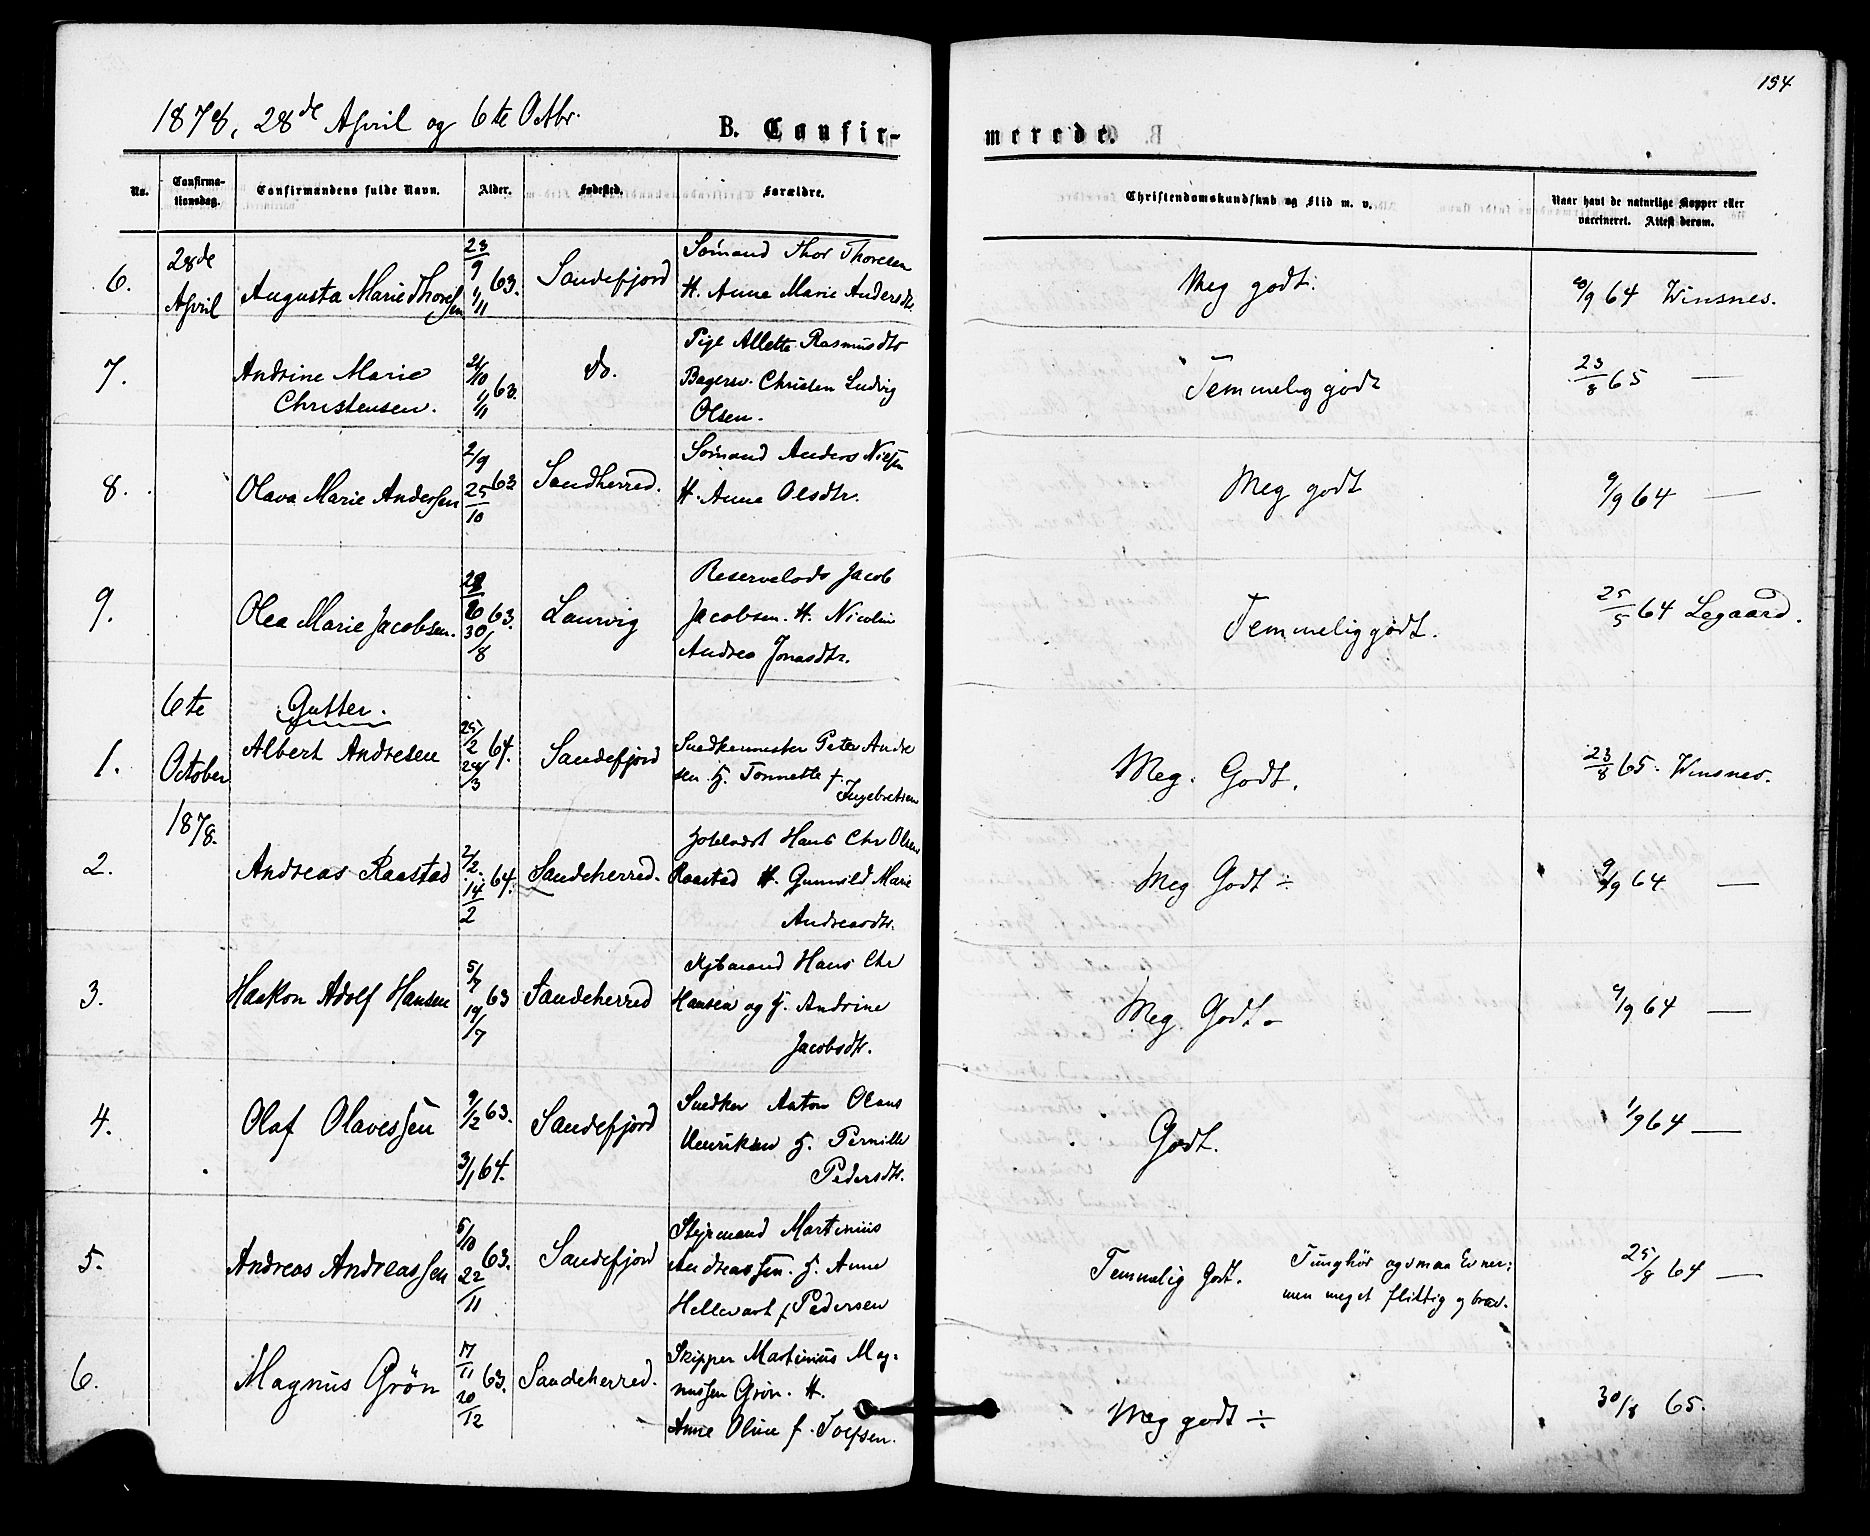 154
1878, 28de April og 6te Octbr.
B. Confir-
merede.
No.
Confirma-
tionsdag.
Confirmandens fulde Navn.
Alder.
Fødested.
Forældre.
Christendomskundskab og Flid m. v.
Naar havt de naturlige Kopper eller
vaccineret. Attest derom.
28de
April
6. Augusta Marie Thoresen 23/9 63. 1/11 Sandefjord
Sømand Thor Thoresen
H. Anne Marie Andersdtr.
Meg godt. 20/9 64 Winsnes.
7. Andrine Marie
Christensen. 21/10 63. 1/11 do.
Pige Allette Rasmusdtr
Bagersv. Christen Ludvig
Olsen.
Temmelig godt 23/8 65 —
8. Olava Marie Anderssen 2/9 63 25/10 Sandherred.
Sømand Anders Nilsen
H. Anne Olsdtr.
Meg godt 9/9 64 —
9. Olea Marie Jacobsen. 63. 30/8 Laurvig
Reservelods Jacob
Jacobsen. H. Nicolin
Andrea Jonasdtr.
Temmelig godt. 25/5 64 Legaard.
6te
October
1878.
Gutter.
1. Albert Andresen 25/2 64. 24/3 Sandefjord
Snedkermester Peter Andre
sen H. Tonnette f.
Ingebretsen
Meg. Godt. 23/8 65. Winsnes.
2. Andreas Raastad 2/2. 64. 14/2 Sandeherred.
Hans Chr Olsen
Raastad H. Gunnild Marie
Andreasdtr.
Meg Godt ÷ 9/9 64 —
3. Haakon Adolf Hansen 5/7 63 19/7 Sandeherred
Hans Chr
Hansen og H. Andrine
Jacobsdtr.
Meg. Godt- 9/9 64 —
4. Olaf Olavessen 9/12 63. 3/1 64. Sandefjord
Snedker Anton Olaus
Henriksen H. Pernille
Pedersdtr.
Godt. 1/9 64 —
5. Andreas Andreassen 5/10 63. 22/11 Sandefjord
Styrmand Martinius
Andreassen. H. Anne
Hellevart f Pedersen
Temmelig Godt. Tunghør og smaa Evner;
men meget flittig og brav. 25/8 64 —
6. Magnus Grön 17/11 63. 20/12 Sandeherred.
Skipper Martinius Mag-
nussen Grön. H.
Anne Oline f. Joefsen.
Meg godt ÷ 30/8 65.